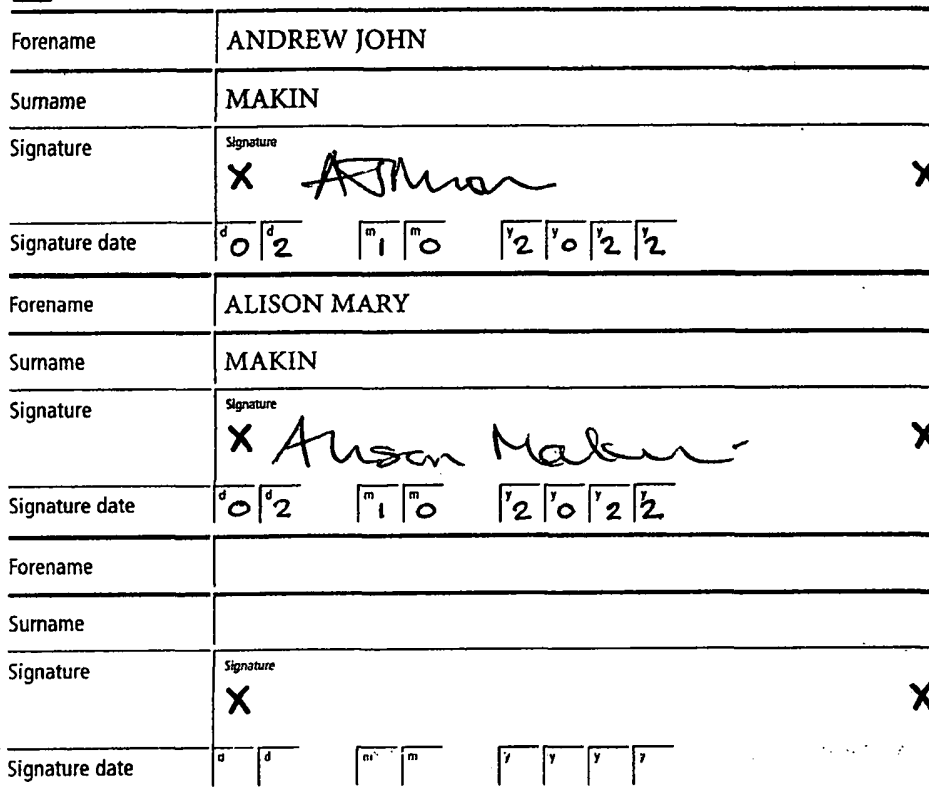 Forename ANDREW JOHN
Surname MAKIN
Signature Signature
X AJMakin X
Signature date d0 d2 m1 m0 y2 y0 y2 y2
Forename ALISON MARY
Surname MAKIN
Signature Signature
X Alison Makin X
Signature date d0 d2 m1 m0 y2 y0 y2 y2
Forename
Surname
Signature Signature
X X
Signature date d d m m y y y y